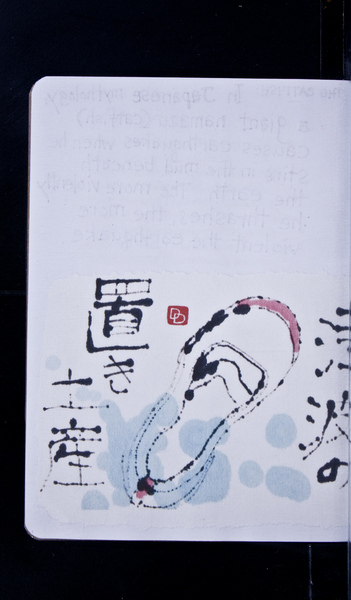 In Japanese mythology,
a giant namazu (catfish)
causes earthquakes when he
stirs in the mud beneath
the earth. The more violently
he thrashes, the more
violent the earthquake
津波の
置き
土産